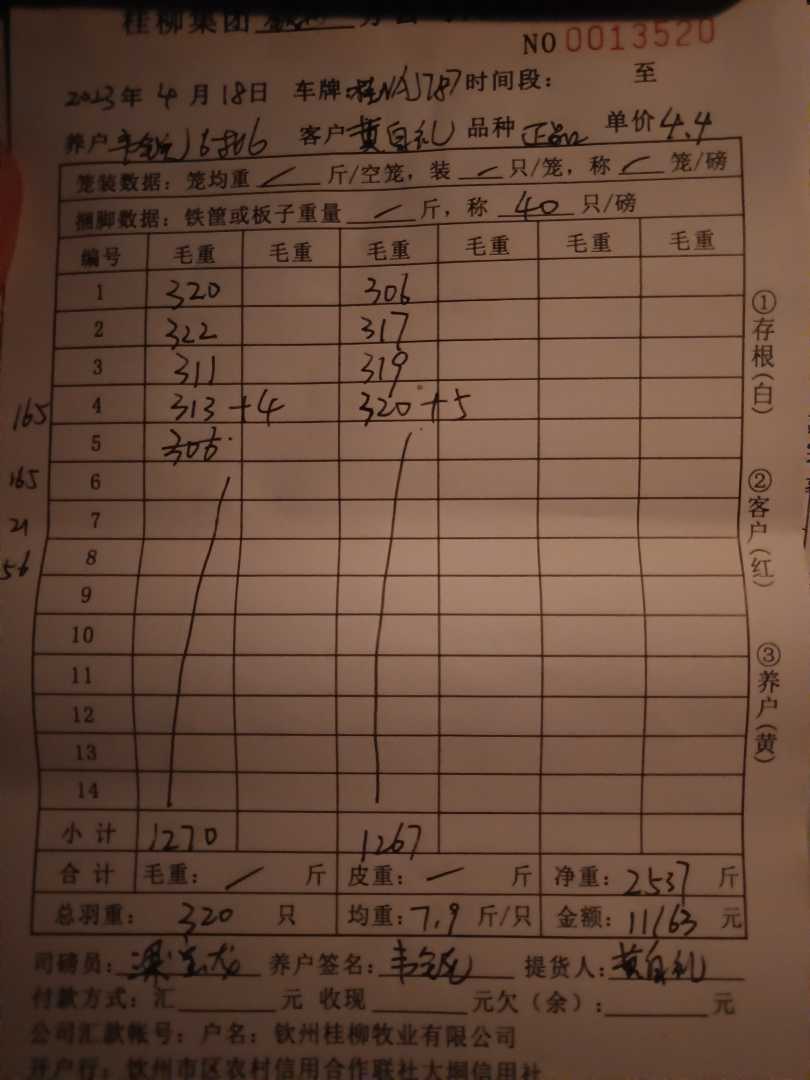 桂柳集团
NO 0013520
2023年 4月 18日 车牌:桂NAJ787 时间段: 至
养户 客户 黄自礼 品种 正品 单价 4.4
笼装数据:笼均重 / 斤/空笼,装 / 只/笼,称 / 笼/磅
捆脚数据:铁筐或板子重量 / 斤,称 40 只/磅
编号 毛重 毛重 毛重 毛重 毛重 毛重
1 320 306
2 322 317
3 311 319
165 4 313+4 320+5
5 306
165 6
21 7
56 8
9
10
11
12
13
14
小计 1270 1267
合计 毛重: / 斤 皮重: / 斤 净重: 2537 斤
总羽重: 320 只 均重: 7.9 斤/只 金额: 11163 元
司磅员: 养户签名: 提货人: 黄自礼
付款方式:汇 元 收现 元欠(余): 元
公司汇款帐号:户名:钦州桂柳牧业有限公司
开户行:钦州市区农村信用合作联社大垌信用社
①存根(白)
②客户(红)
③养户(黄)